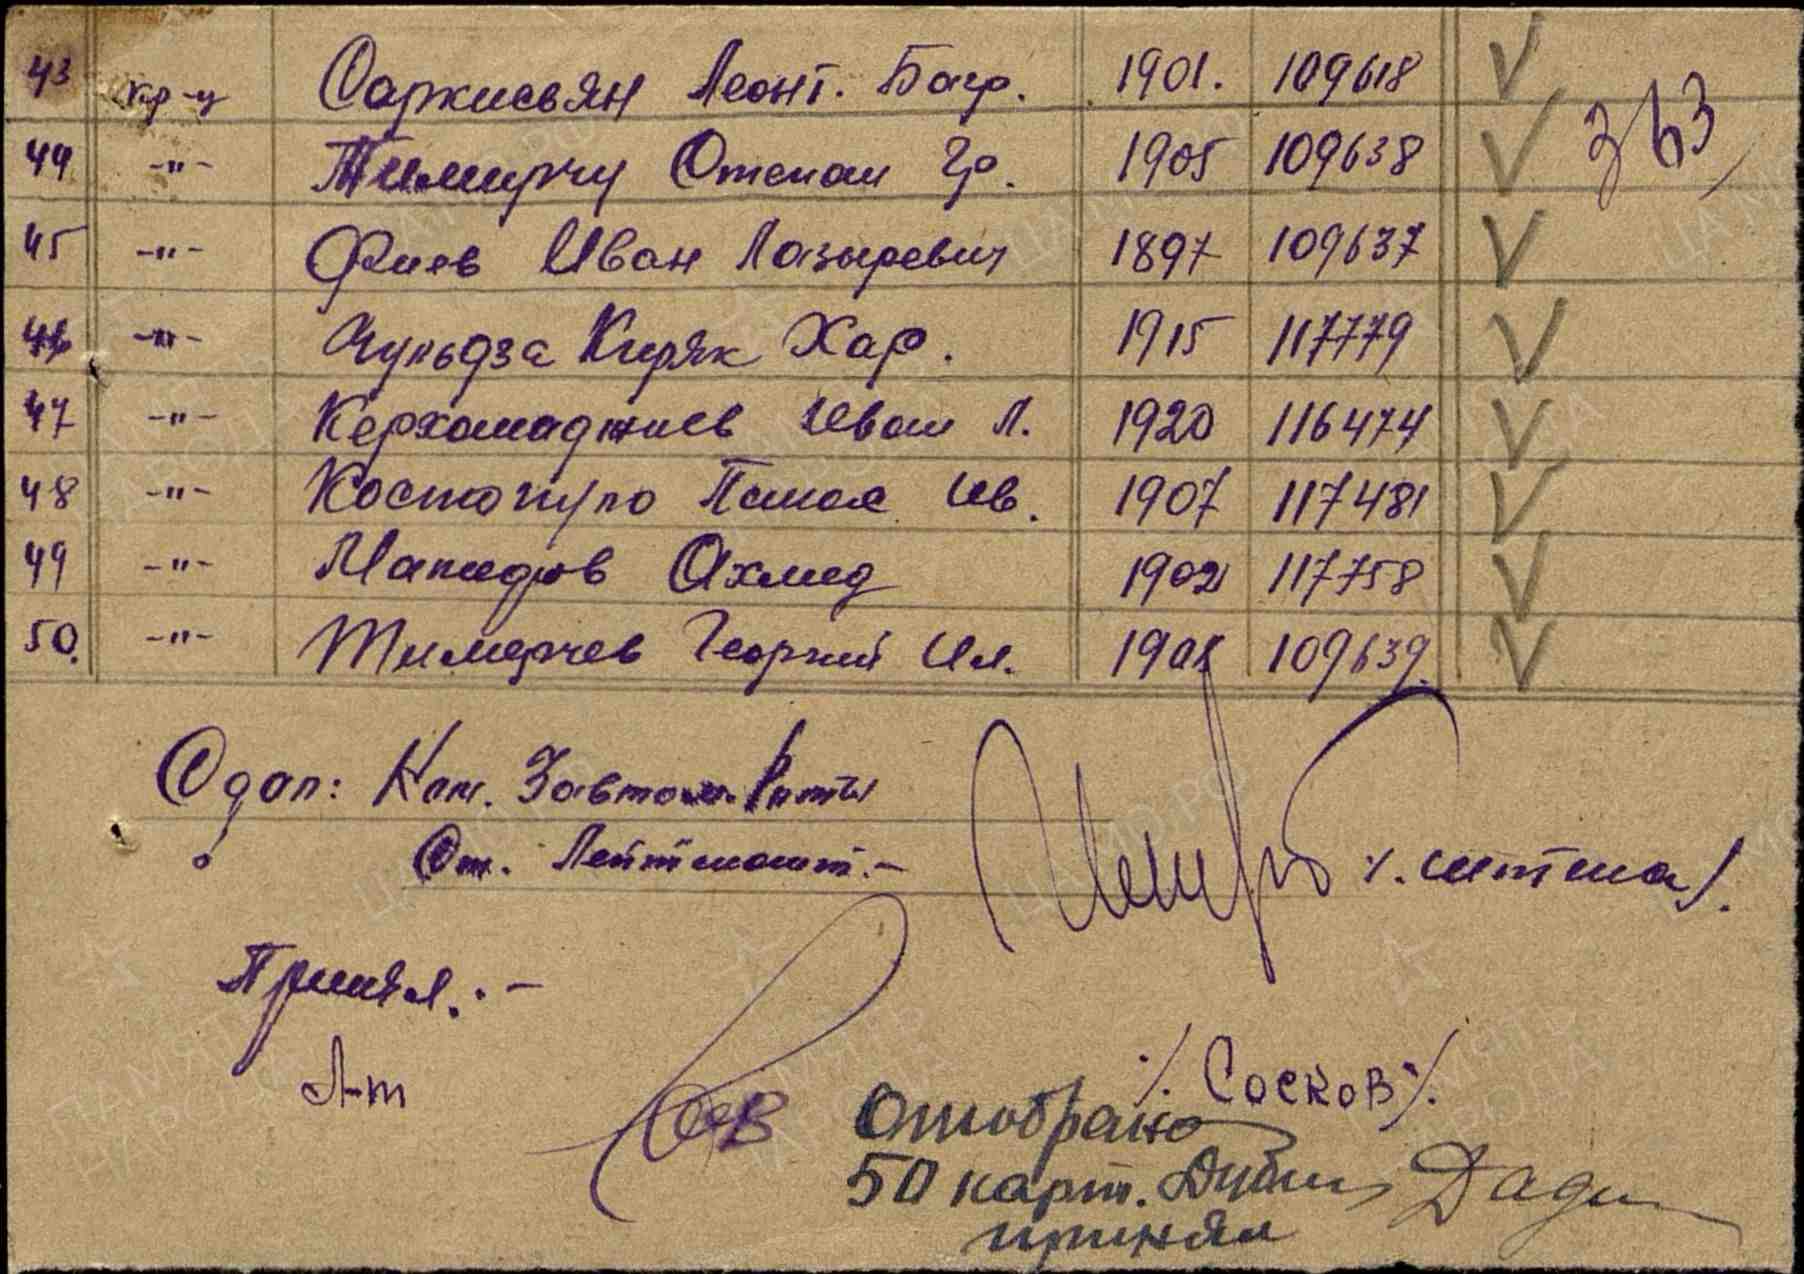 43 кр-ц Саркисьян Леонт. Багр. 1901. 109618 V
363
44 -"- Тимирчу Степан Гр. 1905 109638 V
45 -"- Фиев Иван Лазыревич 1897 109637 V
46 -"- Чульдза Киряк Хар. 1915 117779 V
47 -"- Керхомаджиев Иван Л. 1920 116474 V
48 -"- Костопуло Панаэ Ив. 1907 117481 V
49 -"- Мамедов Ахмед 1902 117758 V
50. -"- Тимерчев Георгий Ил. 190 109639. V
Сдал: Ком. Роты
Ст. Лейтенант. -
Принял. -
Л-т /. Сосков /.
Отобрано
50 карт.
принял